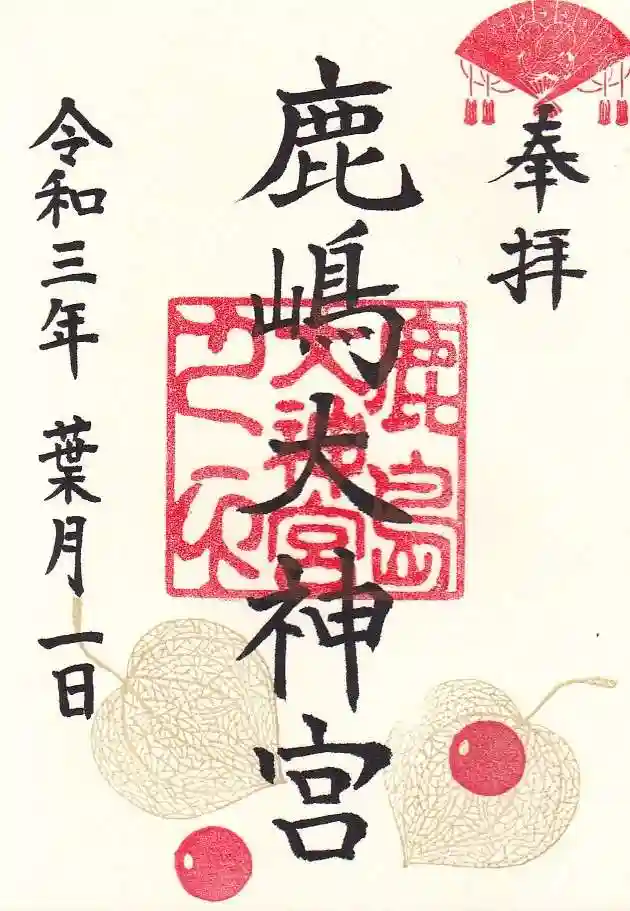 奉拝
鹿嶋大神宮
鹿島
大神宮
之印
令和三年 葉月一日